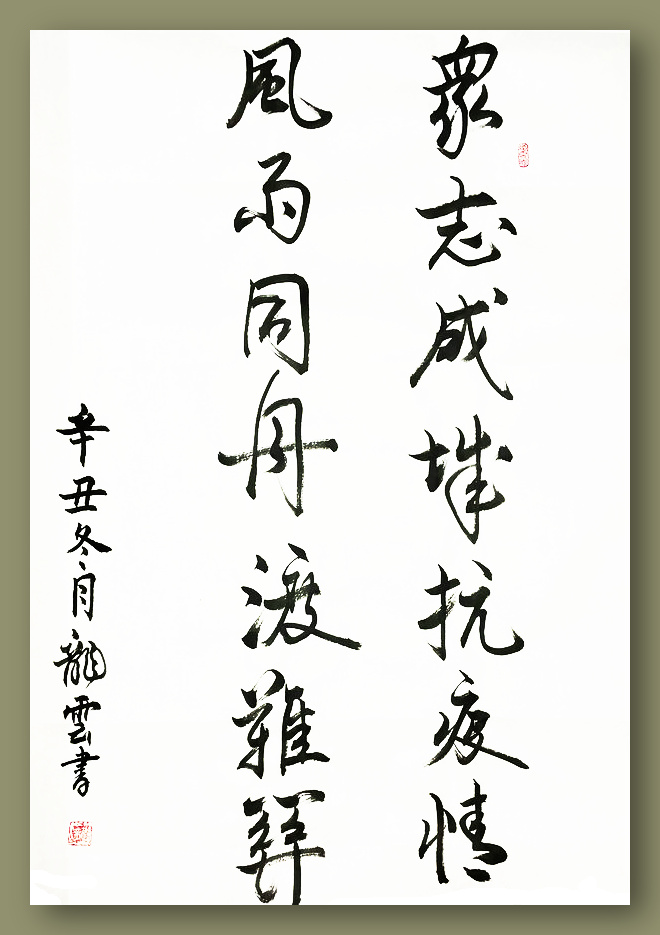 眾志成城抗疫情
風雨同舟渡難關
辛丑冬月龍雲書